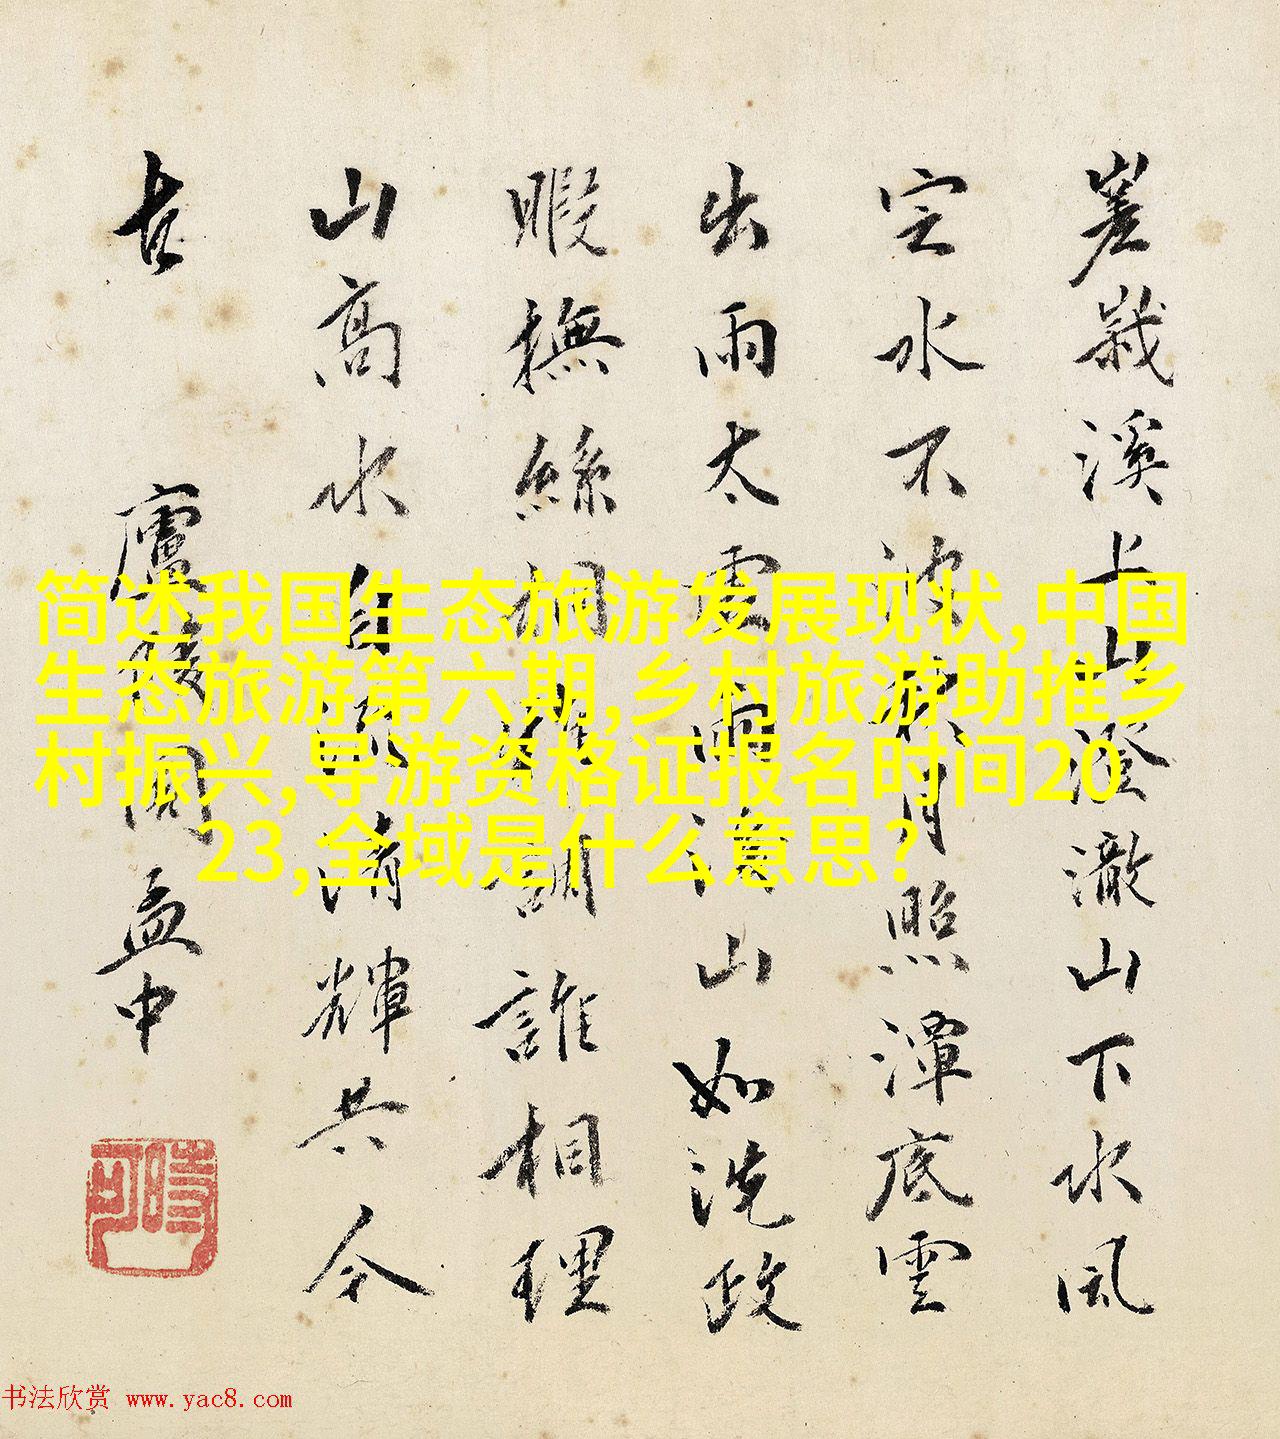 嵳峩溪上山澄澈山下水風
定水不波月照潭底雲
出雨太虛山如洗政
暇撫絲桐調誰相理
山高水自流清輝共今
古
廬陵周孟中
時可
简述我国生态旅游发展现状,中国
生态旅游第六期,乡村旅游助推乡
村振兴,导游资格证报名时间20
23,全域是什么意思?
书法欣赏 www.yac8.com